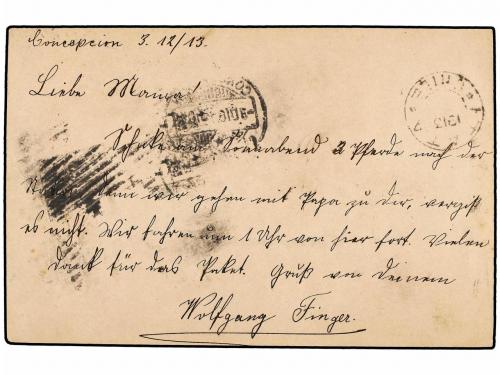 Concepcion 3. 12/13.
Liebe Mama!
Schicke am Sonnabend 2 Pferde nach der
denn wir gehen mit Papa zu dir, vergiß
es nicht. Wir fahren um 1 Uhr von hier fort. Vielen
Dank für das Paket. Gruß von deinem
Wolfgang Finger.